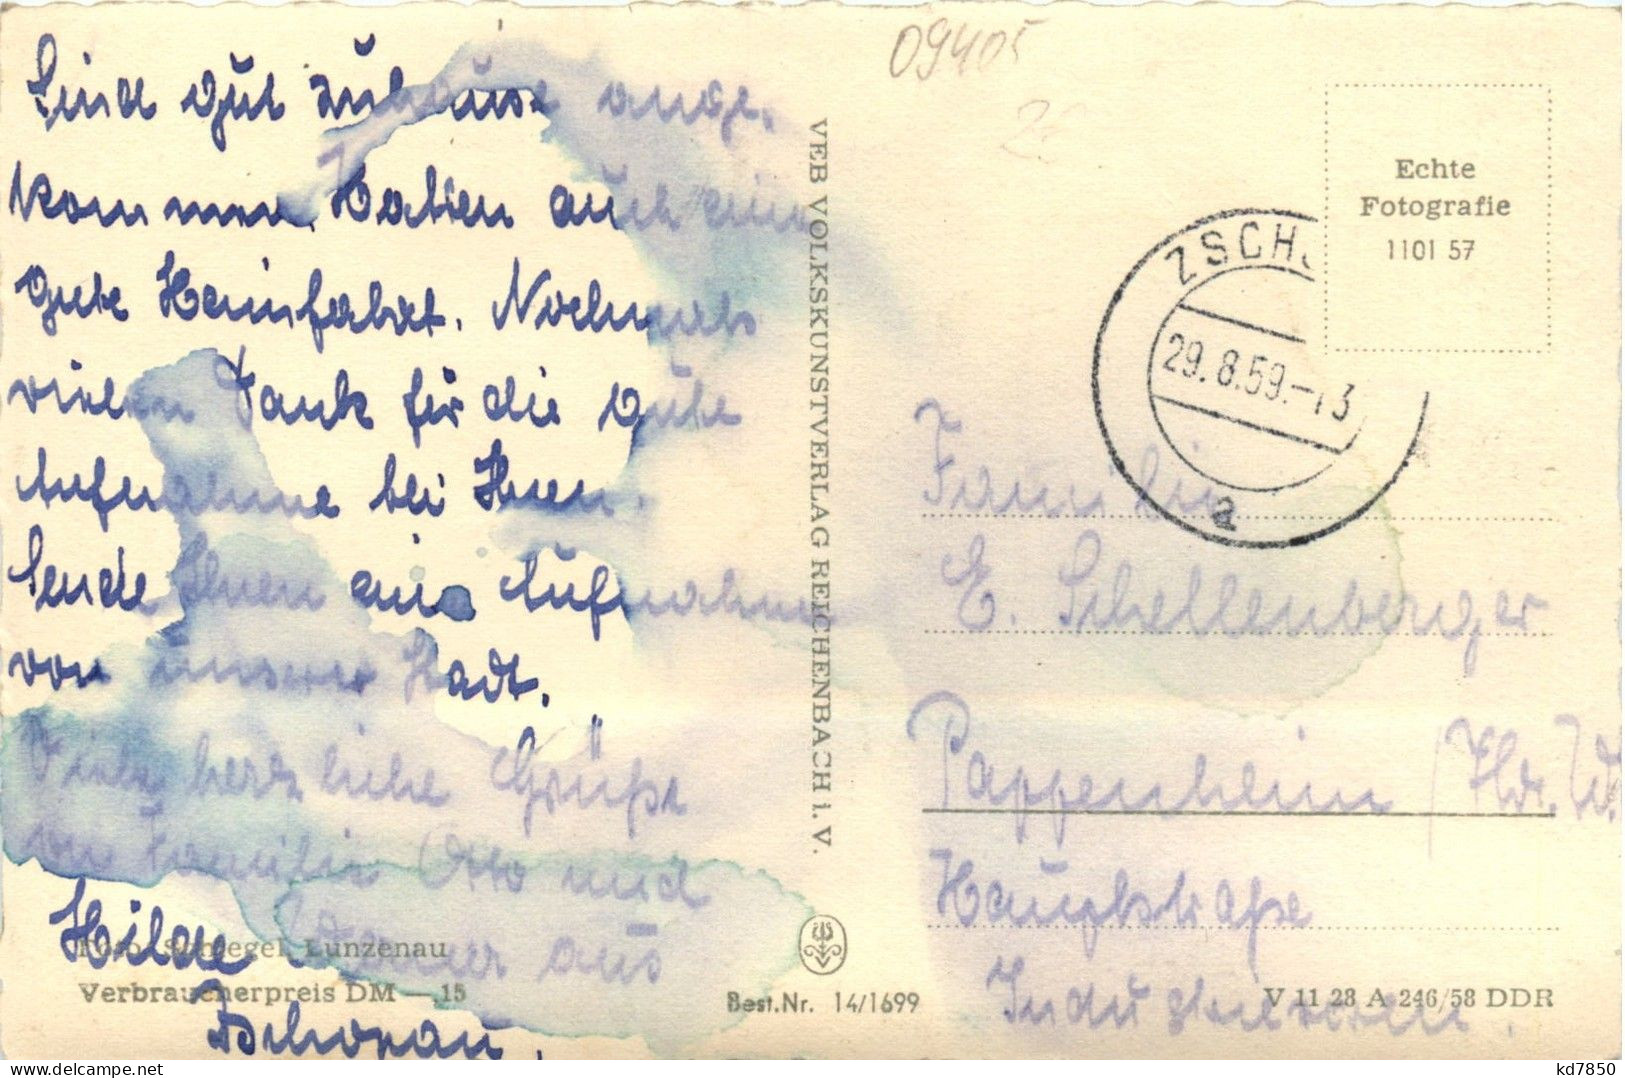 Sind gut zuhause ange-
kommen. Haben auch eine
gute Heimfahrt. Nochmals
vielen Dank für die gute
Aufnahme bei Ihnen.
Sende Ihnen eine Aufnahme
von unserer Stadt.
Viele herzliche Grüße
von Familie Otto und
Hilde aus
Zschopau.
Foto: Schlegel, Lunzenau
Verbraucherpreis DM —,15
VEB VOLKSKUNSTVERLAG REICHENBACH i. V.
Best.Nr. 14/1699
09405
Echte
Fotografie
1101 57
ZSCH
29.8.59.-13
a
Familie
E. Schellenberger
Pappenheim / Thür. W.
Hauptstraße
V 11 28 A 246/58 DDR
kd7850